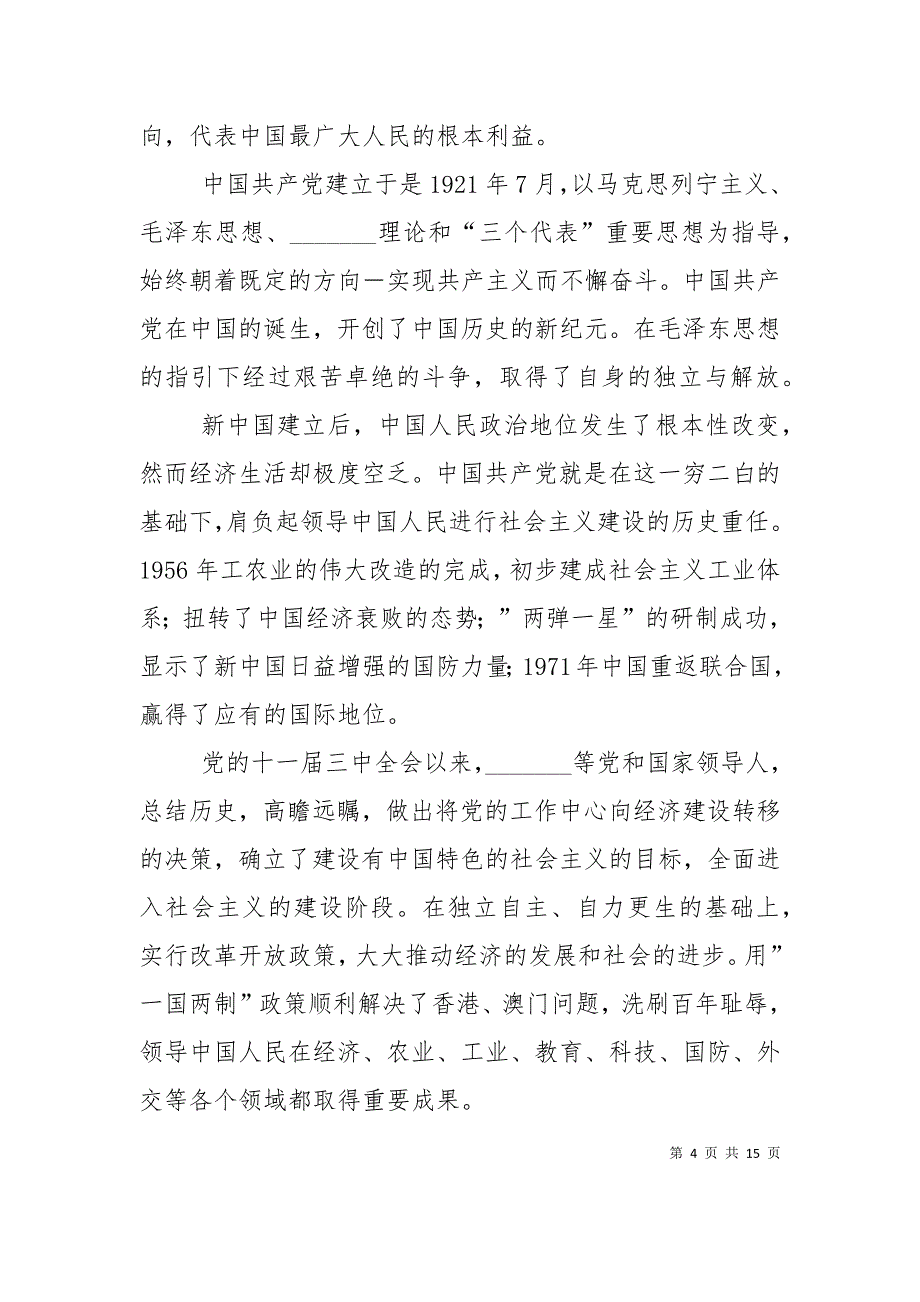 向，代表中国最广大人民的根本利益。
中国共产党建立于是 1921 年 7 月，以马克思列宁主义、
毛泽东思想、_______理论和“三个代表”重要思想为指导，
始终朝着既定的方向－实现共产主义而不懈奋斗。中国共产
党在中国的诞生，开创了中国历史的新纪元。在毛泽东思想
的指引下经过艰苦卓绝的斗争，取得了自身的独立与解放。
新中国建立后，中国人民政治地位发生了根本性改变，
然而经济生活却极度空乏。中国共产党就是在这一穷二白的
基础下，肩负起领导中国人民进行社会主义建设的历史重任。
1956 年工农业的伟大改造的完成，初步建成社会主义工业体
系；扭转了中国经济衰败的态势；”两弹一星”的研制成功，
显示了新中国日益增强的国防力量；1971 年中国重返联合国，
赢得了应有的国际地位。
党的十一届三中全会以来，_______等党和国家领导人，
总结历史，高瞻远瞩，做出将党的工作中心向经济建设转移
的决策，确立了建设有中国特色的社会主义的目标，全面进
入社会主义的建设阶段。在独立自主、自力更生的基础上，
实行改革开放政策，大大推动经济的发展和社会的进步。用”
一国两制”政策顺利解决了香港、澳门问题，洗刷百年耻辱，
领导中国人民在经济、农业、工业、教育、科技、国防、外
交等各个领域都取得重要成果。
第 4 页 共 15 页